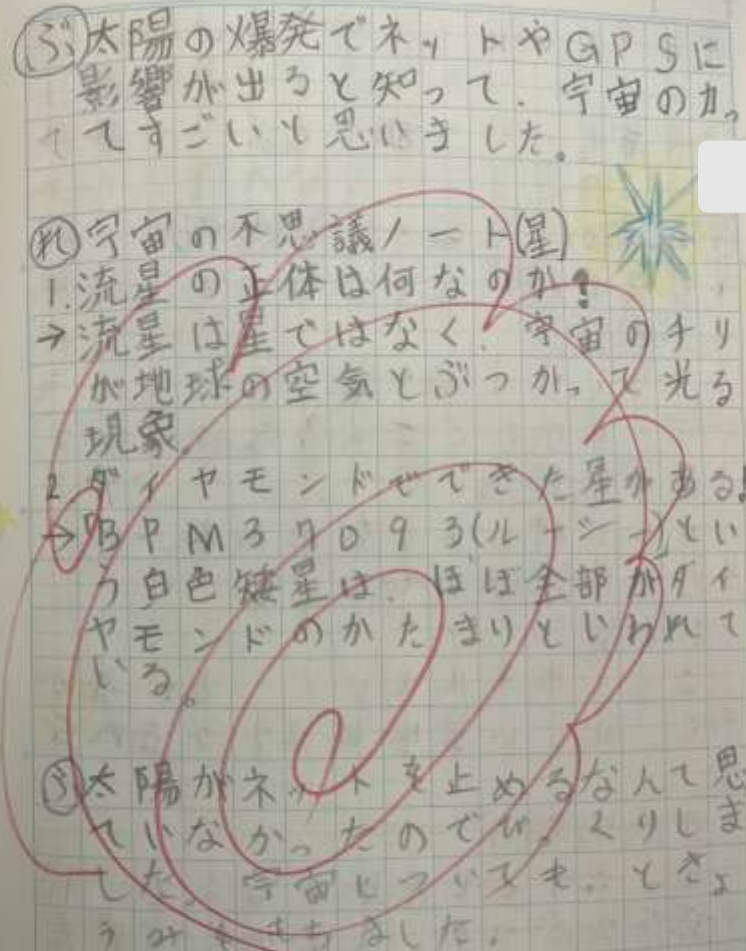 ぶ 太陽の爆発でネットやGPSに
影響が出ると知って、宇宙の力っ
てすごいと思いました。
れ 宇宙の不思議ノート(星)
1.流星の正体は何なのか!
→流星は星ではなく、宇宙のチリ
が地球の空気とぶつかって光る
現象。
2 ダイヤモンドでできた星がある!
→BPM37093(ルーシー)とい
う白色矮星は、ほぼ全部がダイ
ヤモンドのかたまりといわれて
いる。
太陽がネットを止めるなんて思
ていなかったのでび、くりしま
した。宇宙についても、ときょ
うみをもちました。